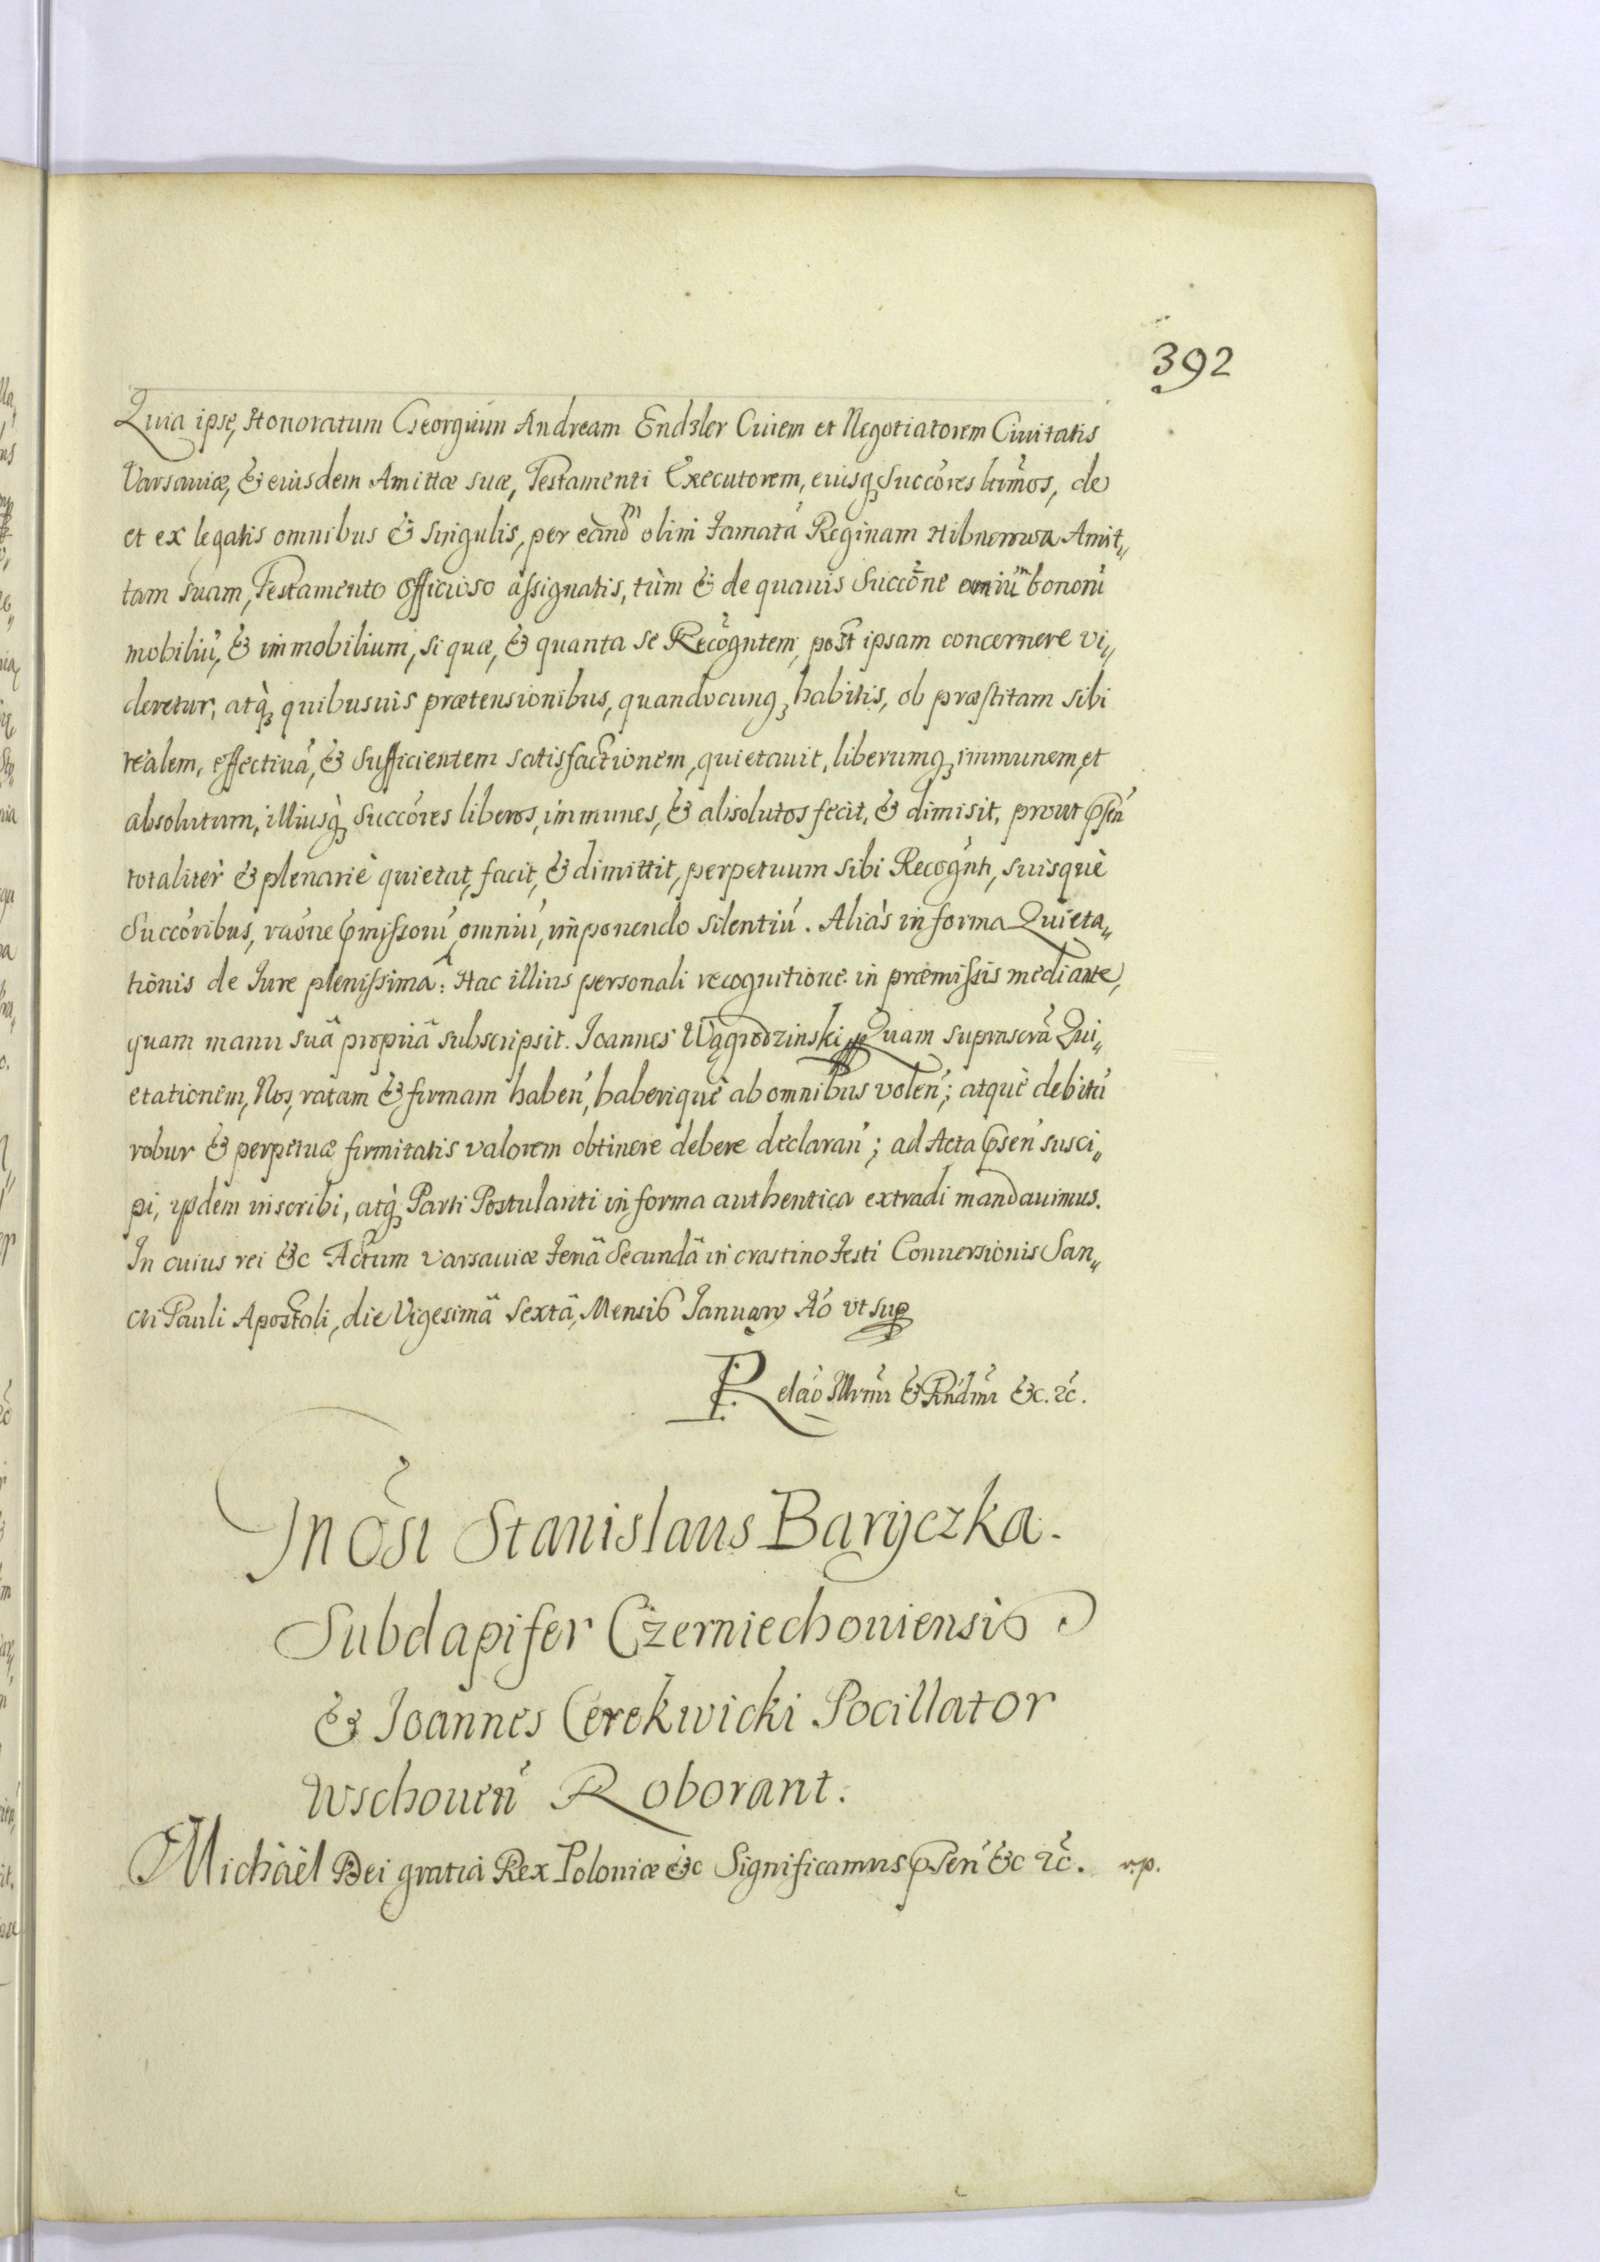 392
Quia ipse, Honoratum Georgium Andream Endzler Ciuem et Negotiatorem Ciuitatis
Varsauiæ, & eiusdem Amittæ suæ, Testamenti Executorem, eiusq3 succóres ltimos, de
et ex legatis omnibus & singulis, per eand̃m olim famatá Reginam Hibnerowa Amit„
tam suam, Testamento officioso assignatis, tùm & de quauis Succõne omniũ bonorú
mobiliú, & immobilium, si quæ, & quanta se Recógntem, post ipsam concernere vi„
deretur, atq̀3 quibusuis prætensionibus, quandocunq3 habitis, ob præstitam sibi
realem, effectiuá, & sufficientem satisfactionem, quietauit, liberumq3 immunem, et
absolutum, illiusq̀3 succóres liberos, immunes, & absolutos fecit, & dimisit, prout psén
totalitèr & plenariè quietat, facit, & dimittit, perpetuum sibi Recognti, suisquè
Succóribus, raóne pmissorú omniú, imponendo silentiú. Aliàs in forma Quieta„
tionis de Iure plenissima: Hac illius personali recognitione in præmissis mediante,
quam manu suâ propriâ subscripsit. Ioannes Wągrodzinski Quam suprascrã Qui„
etationem, Nos, ratam & firmam habeń, haberiquè ab omnibus voleń; atquè debitú
robur & perpetuæ firmitatis valorem obtinere debere declarań; ad Acta pseń susci„
pi, ijsdem inscribi, atq̀3 Parti Postulanti in forma authentica extradi mandauimus.
In cuius rei &c Actum Varsauiæ feriâ Secundâ in crastino festi Conuersionis San„
cti Pauli Apostoli, die Vigesimâ Sextâ, Mensis Ianuarij Aó vt sup
Relaó Illrmi & Rndmi &c. zc.
Gnõsi Stanislaus Baryczka
Subdapifer Czerniechouiensis
& Ioannes Cerekwicki Pocillator
Wschoueń Roborant.
Michaël Dei gratiâ Rex Poloniæ &c Significamus pseń &c zc. v.p.